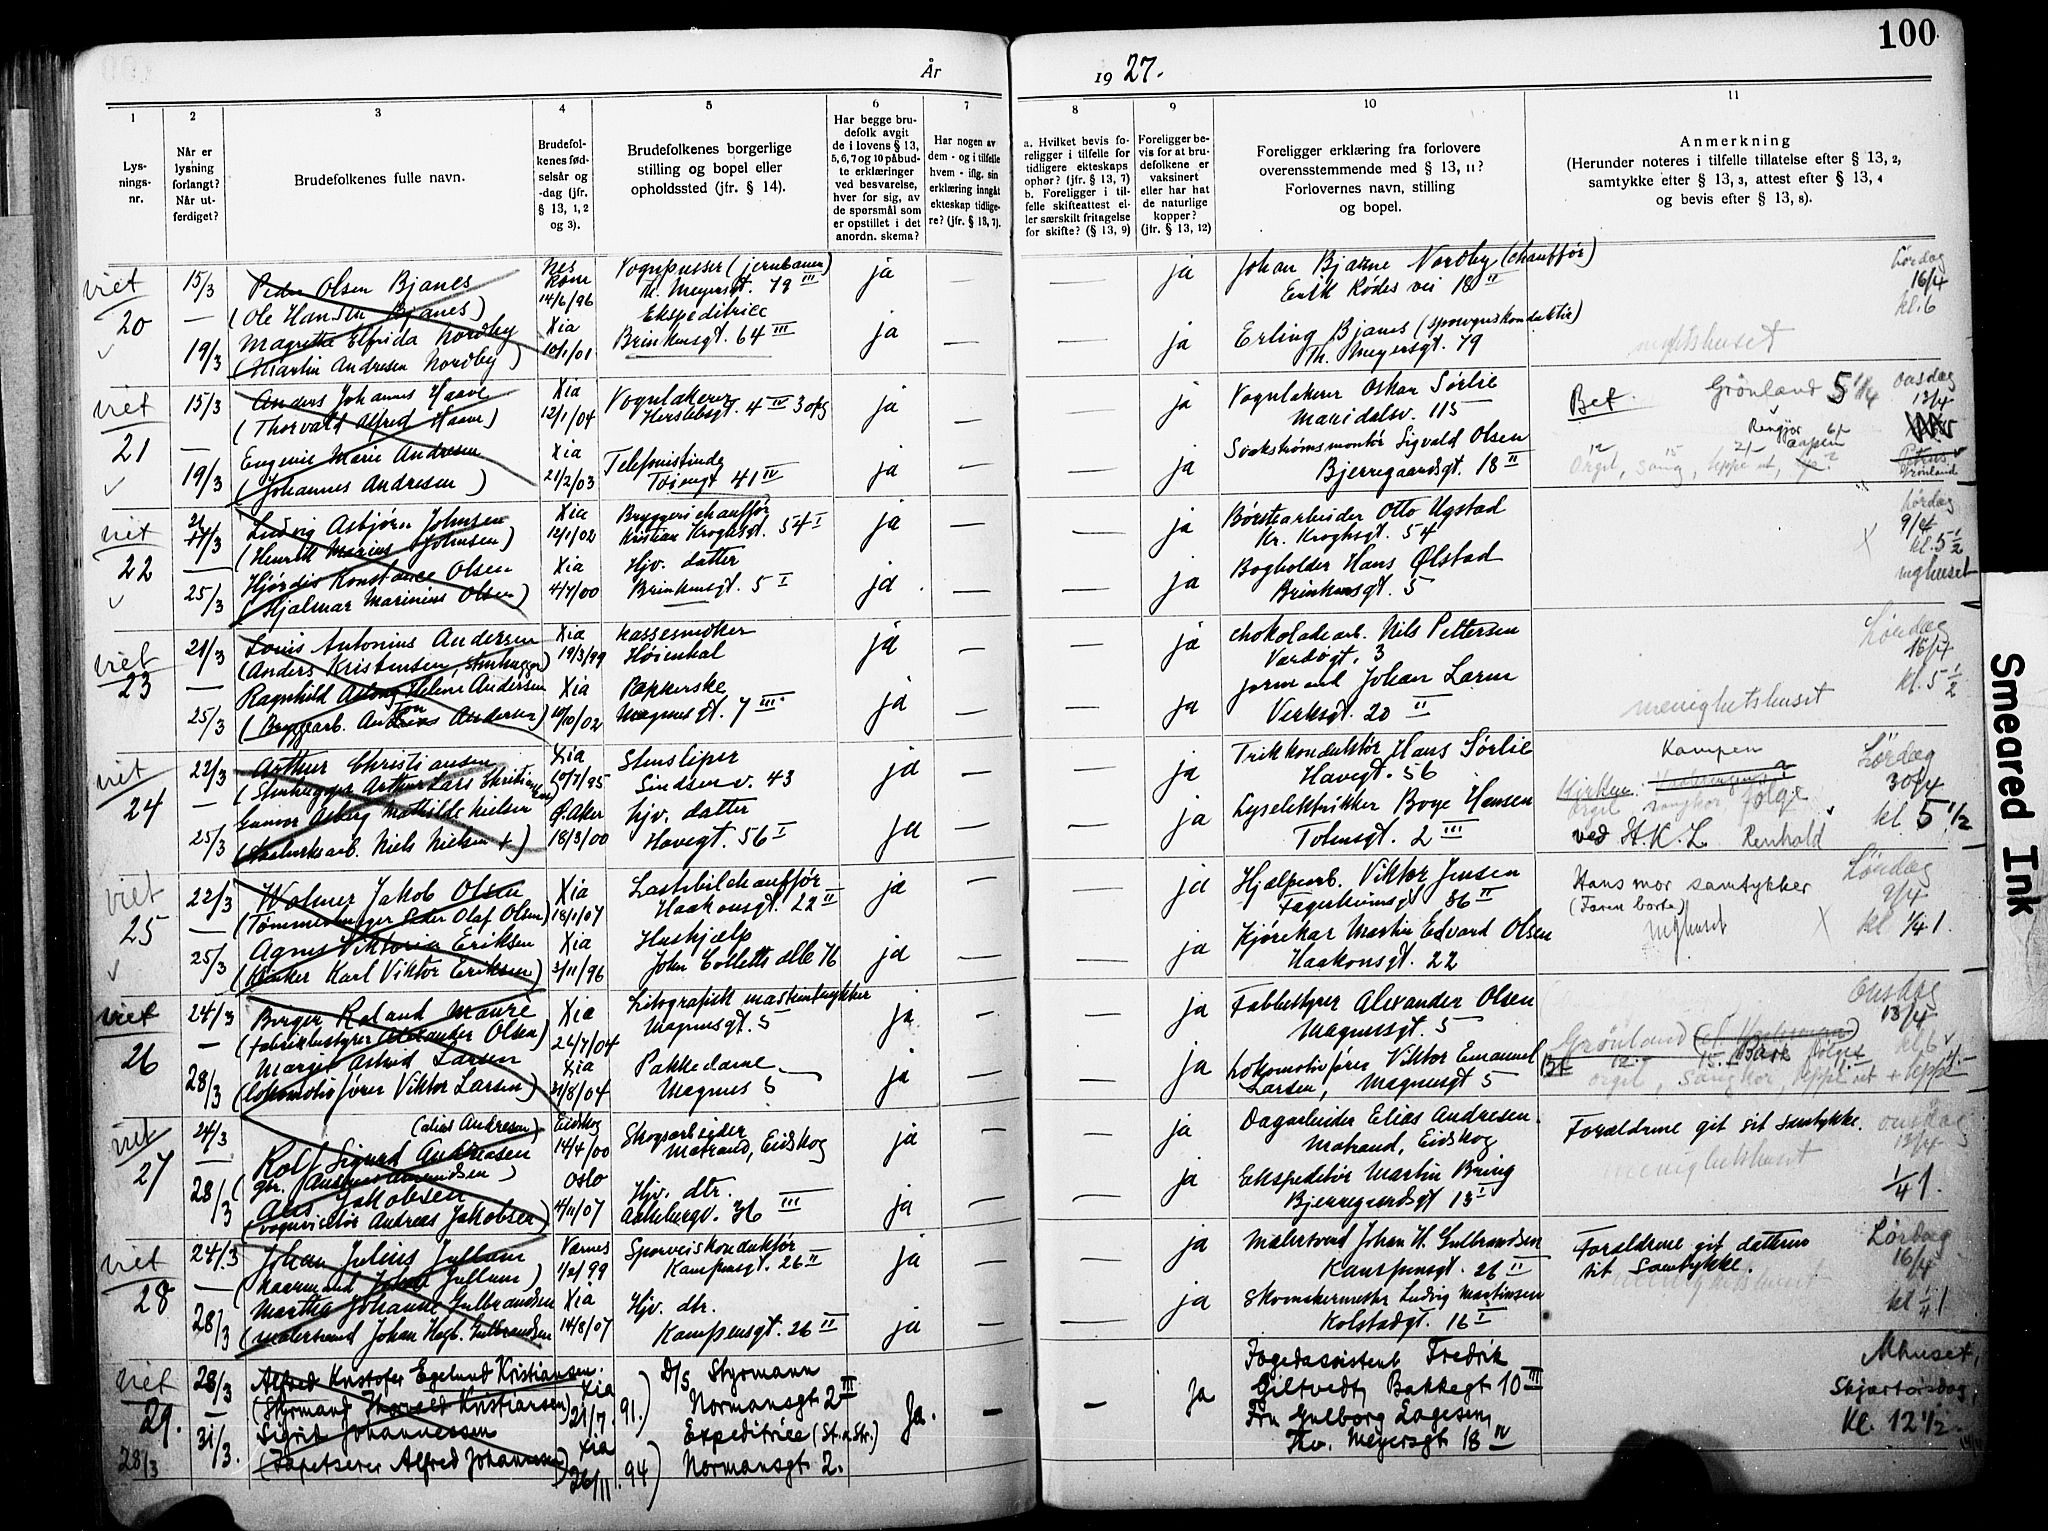 100
År
19 27.
1
2
3
4
5
6
7
8
9
10
11
Lys-
nings-
nr.
Når er
lysning
forlangt?
Når ut-
ferdiget?
Brudefolkenes fulle navn.
Brudefol-
kenes fød-
selsår og
-dag (jfr.
§ 13, 1, 2
og 3).
Brudefolkenes borgerlige
stilling og bopel eller
opholdssted (jfr. § 14).
Har begge bru-
defolk avgit
de i lovens § 13,
5, 6, 7 og 10 påbud-
te erklæringer
ved besvarelse,
hver for sig, av
de spørsmål som
er opstillet i det
anordn. skema?
Har nogen av
dem - og i tilfelle
hvem - iflg. sin
erklæring inngåt
ekteskap tidlige-
re? (jfr. § 13, 7).
a. Hvilket bevis fo-
religger i tilfelle for
tidligere ekteskaps
ophør? (jfr. § 13, 7)
b. Foreligger i til-
felle skifteattest el-
ler særskilt fritagelse
for skifte? (§ 13, 9)
Foreligger be-
vis for at bru-
defolkene er
vaksinert
eller har hat
de naturlige
kopper?
(jfr. § 13, 12)
Foreligger erklæring fra forlovere
overensstemmende med § 13, 11?
Forlovernes navn, stilling
og bopel.
Anmerkning
(Herunder noteres i tilfelle tillatelse efter § 13, 2,
samtykke efter § 13, 3, attest efter § 13, 4
og bevis efter § 13, 8).
viet
20
15/3
—
19/3
Peder Olsen Bjanes
(Ole Hansen Bjanes)
Magrethe Elfrida Nordby
(Martin Andresen Nordby)
Nes
Rom
14/6/96
Xia
10/1/01
Vognpusser (jernbanen)
Th. Meyersgt. 79 III
Ekspeditrice
Brinkensgt. 64 III
ja
ja
—
—
ja
ja
Johan Bjarne Nordby (chauffør)
Erik Rødes vei 18 II
Erling Bjanes (sporvognskonduktør)
Th. Meyersgt. 79
Lørdag
16/4
kl. 6
viet
21
15/3
—
19/3
Anders Johannes Haave
(Thorvald Alfred Haave)
Eugenie Marie Andresen
(Johannes Andresen)
Xia
12/1/04
Xia
21/2/03
Vognlakerer
Herslebsgt. 4 IV 3 opg
Telefonistinde
Tøiengt 41 IV
ja
ja
—
—
ja
ja
Vognlakerer Oskar Sørlie
Maridalsv. 115
Svakstrømsmontør Sigvald Olsen
Bjerregaardsgt. 18 II
Bet. Grønland
Orgel, Sang, teppe ut,
Onsdag
13/4
Grønland
viet
22
21/3
—
25/3
Ludvig Asbjørn Johnsen
(Henrik Marius Johnsen)
Hjørdis Konstance Olsen
(Hjalmar Marinius Olsen)
Xia
12/1/02
Xia
4/7/00
Bryggerichauffør
Kristian Kroghsgt. 54 I
Hjv. datter
Brinkensgt. 5 I
ja
ja
—
—
ja
ja
Børstearbeider Otto Ugstad
Kr. Kroghsgt. 54
Bogholder Hans Ølstad
Brinkensgt. 5
Lørdag
9/4
kl. 5 1/2
mghuset
viet
23
21/3
—
25/3
Louis Antonius Andersen
(Anders Kristensen, stenhugger)
Ragnhild Aslaug Helene Andersen
(Bryggearb. Anton Andersen)
Xia
19/3/99
Xia
10/10/02
Kassesnekker
Høienhal
Papkerske
Magnusgt. 7 III
ja
ja
—
—
ja
ja
Chokoladearb. Nils Pettersen
Vardøgt. 3
Formand Johan Larm
Verksgt. 20 II
menighetshuset
Lørdag
16/4
kl. 5 1/2
viet
24
22/3
—
25/3
Arthur Christiansen
(Stenhugger Arthur Lars Christiansen)
Gunvor Asbjrg Mathilde Nielsen
(Niels Nielsen +)
Xia
10/7/95
Ø. Aker
18/3/00
Stensliper
Sindsenv. 43
Hjv. datter
Havegt. 56 I
ja
ja
—
—
ja
ja
Trikkonduktør Hans Sørlie
Havegt. 56
Lyselektrikker Boye Hansen
Tøiensgt. 2 III
Kampen
Kirken
Orgel sangkor følge
ved H. K. L. Renhold
Lørdag
30/4
kl. 5 1/2
viet
25
22/3
—
25/3
Wolmer Jakob Olsen
(Tømmerhugger Peder Olaf Olsen)
Agnes Viktoria Eriksen
(Karl Viktor Eriksen)
Xia
18/1/07
Xia
3/11/96
Lastebilchauffør
Haakonsgt. 22 II
Hushjælp
John Colletts alle 76
ja
ja
—
—
ja
ja
Hjælpearb. Viktor Jensen
Fagerheimsgt 36 II
Kjørekar Martin Edvard Olsen
Haakonsgt. 22
Hans mor samtykker
(Faren borte)
Mghuset
Lørdag
9/4
kl. 1/4 1.
viet
26
24/3
—
28/3
Birger Roland Maurè
(Fabrikbestyrer Alexander Olsen)
Margit Astrid Larsen
(Lokomotivfører Viktor Larsen)
Xia
26/7/04
Xia
31/8/04
Litografisk maskintrykker
Magnusgt. 5
Pakkedame
Magnus 5
ja
ja
—
—
ja
ja
Fabbestyrer Alexander Olsen
Magnusgt. 5
Lokomotivfører Viktor Emanuel
Larsen, Magnusgt 5
Grønland
Bet
orgel, Sangkor, teppe ut
Onsdag
13/4
kl. 6
viet
27
24/3
—
28/3
(alias Andresen)
Rolf Sigurd Andreasen
Jakobsen
(vognvisitør Andreas Jakobsen)
Eidskog
14/4/00
Oslo
11/11/07
Skogsarbeider
Matrand, Eidskog
Hjv. dtr.
Aakebergv. 36 III
ja
ja
—
—
ja
ja
Dagarbeider Elias Andresen
Matrand, Eidskog
Ekspeditør Martin Bring
Bjerregaardsgt 13 I
Forældrene git sit samtykke.
menighetshuset
Onsdag
13/4
1/4 1.
viet
28
24/3
—
28/3
Johan Julius Jullum
Martha Johanne Gulbrandsen
(Malersvend Johan Hagb. Gulbrandsen
Værnes
1/2/99
Xia
14/8/07
Sporveiskonduktør
Kampensgt. 26 II
Hjv. dtr.
Kampensgt. 26 II
ja
ja
—
—
ja
ja
Malersvend Johan H. Gulbrandsen
Kampensgt. 26 II
Skomakermester Ludvig Martinsen
Kolstadgt. 16 I
Forældrene git datteren
sit samtykke.
Lørdag
16/4
kl 1/4 1
viet
29.
28/3
28/3
—
31/3.
Alfred Kristofer Egelund Kristiansen.
(Styrmand Thorvald Kristiansen)
Sigrid Johannessen
(Tapetserer Alfred Johannessen)
Xia
21/7. 91.)
Xia
26/11. 94)
D/S Styrmann
Normansgt 2 III
Expeditrice (St. & Str.)
Normansgt 2.
Ja.
—
—
Ja
Fogedassistent Fredrik
Giltvedt, Bakkegt 10 III
Fru Gulborg Aagesen,
Thv. Meyersgt 18 IV
Mhuset,
Skjærtorsdag,
Kl. 12 1/2.
Smeared Ink